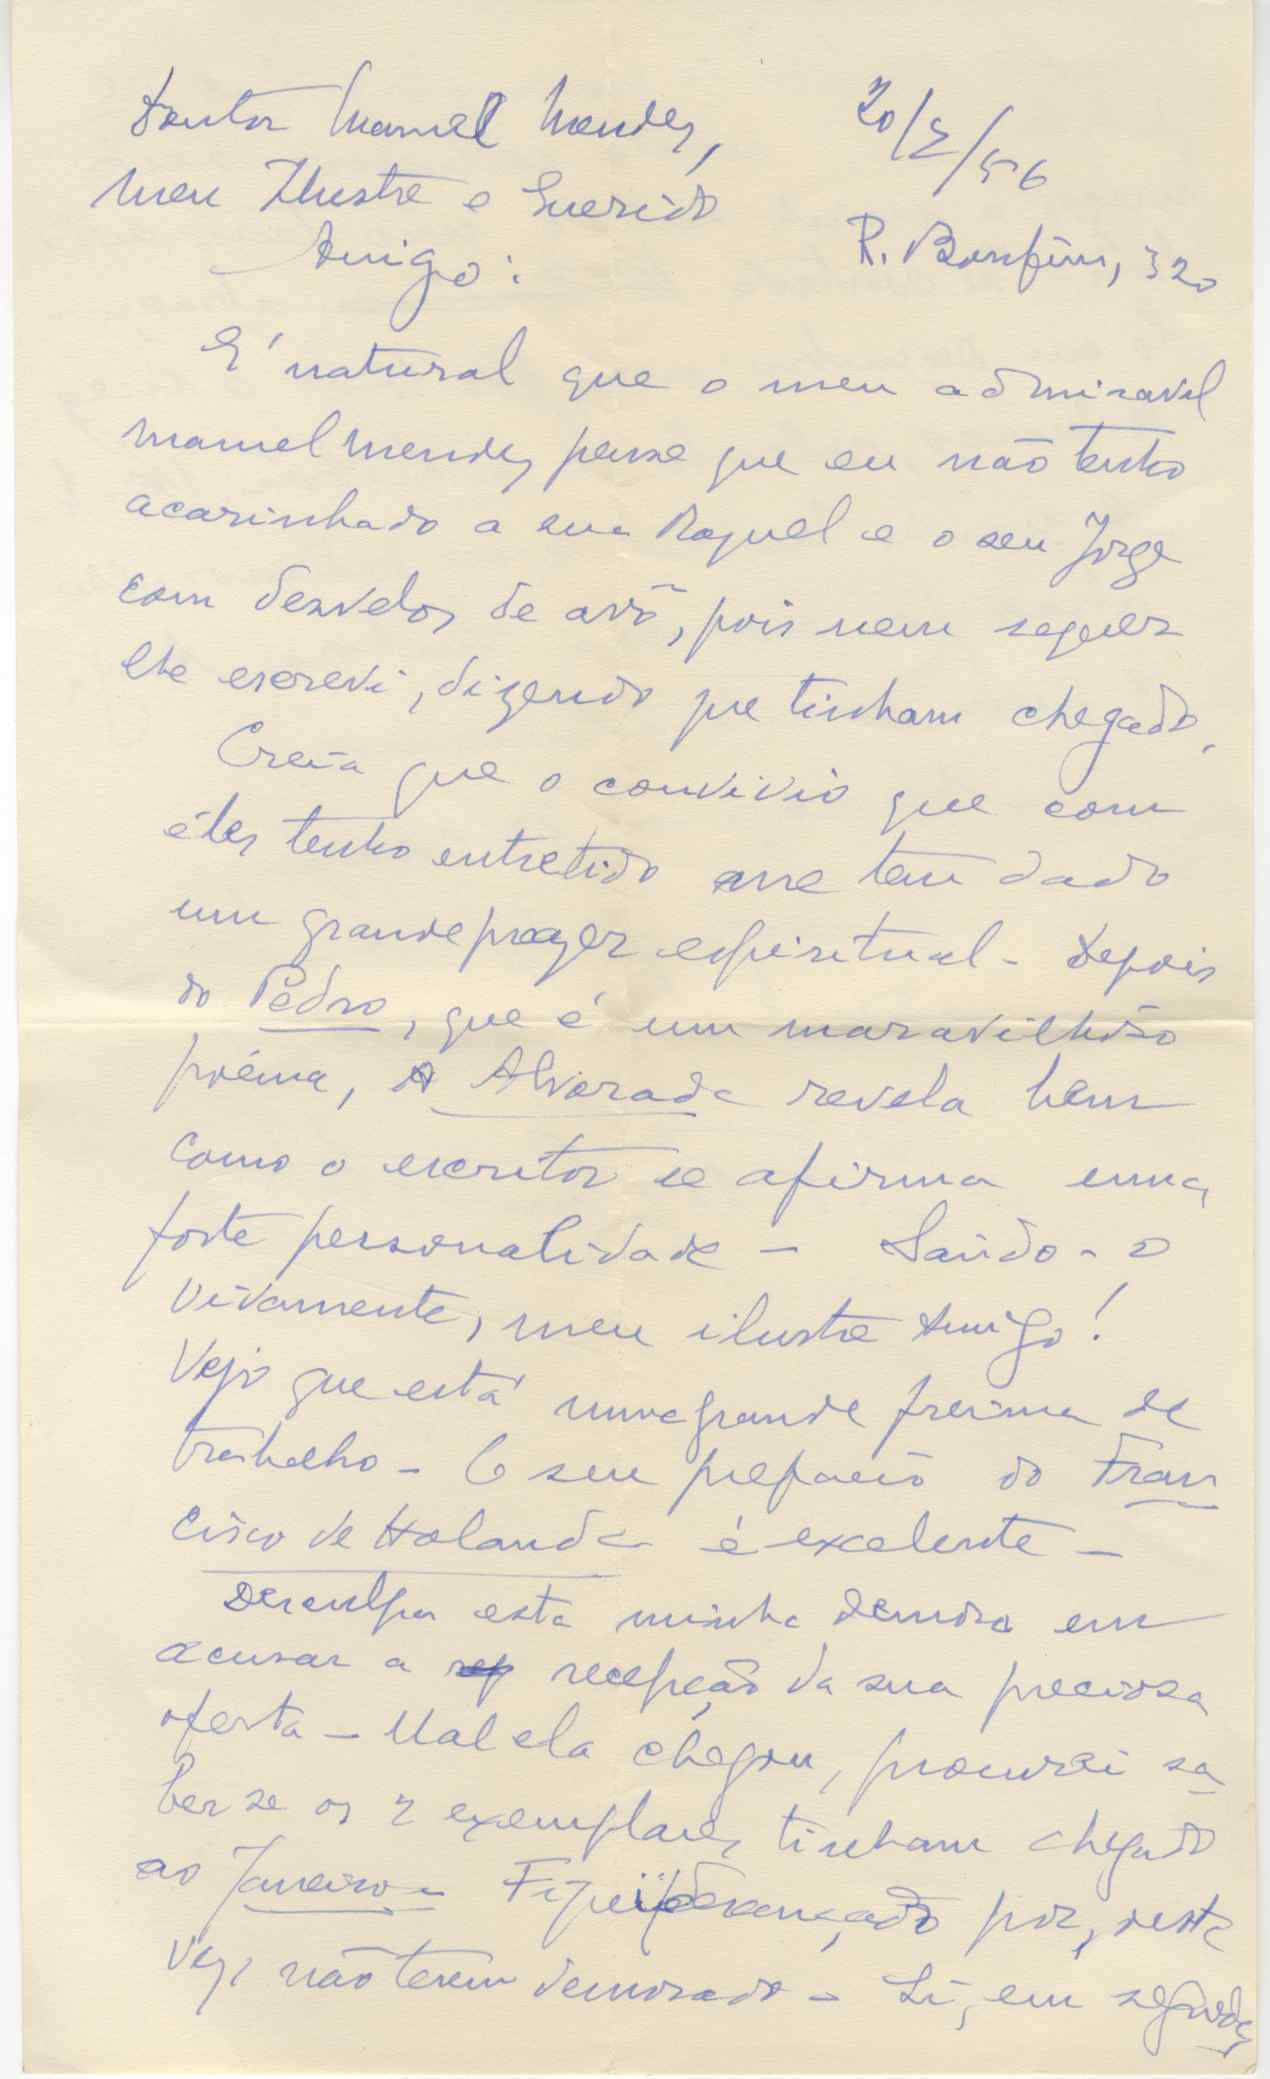 Doutor Manuel Mendes,
20/5/56
Meu Ilustre e Querido
Amigo:
R. Bonfim, 320
E' natural que o meu admiravel
Manuel Mendes pense que eu não tenho
acarinhado a sua Raquel e o seu Jorge
com desvelos de avô, pois nem sequer
lhe escrevi, dizendo que tinham chegado.
Creia que o convivio que com
êles tenho entretido me tem dado
um grande prazer espiritual - Depois
do Pedro, que é um maravilhoso
poéma, A Alvorada revela bem
como o escritor se afirma uma
forte personalidade - Saúdo-o
vivamente, meu ilustre Amigo!
Vejo que está numa grande freima de
trabalho - O seu prefacio do Fran
cisco de Holanda é excelente -
Desculpe esta minha demora em
acusar a recepção da sua preciosa
oferta - Mal ela chegou, procurei sa
ber se os 2 exemplares tinham chegado
ao Janeiro - Fiquei descançado por, desta
vez, não terem demorado - Li, em seguida,